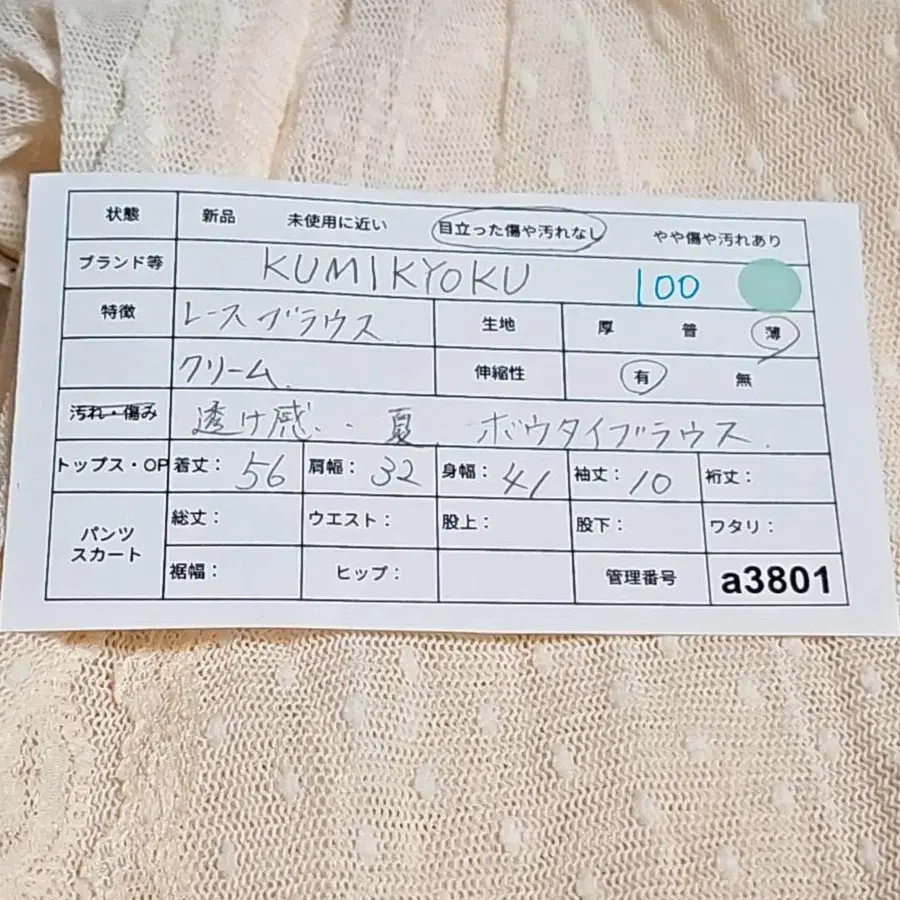 状態 新品 未使用に近い 目立った傷や汚れなし やや傷や汚れあり
ブランド等 KUMIKYOKU 100
特徴 レースブラウス 生地 厚 普 薄
クリーム 伸縮性 有 無
汚れ・傷み 透け感.. 夏 ボウタイブラウス.
トップス・OP 着丈: 56 肩幅: 32 身幅: 41 袖丈: 10 裄丈:
パンツ スカート 総丈: ウエスト: 股上: 股下: ワタリ:
裾幅: ヒップ: 管理番号 a3801